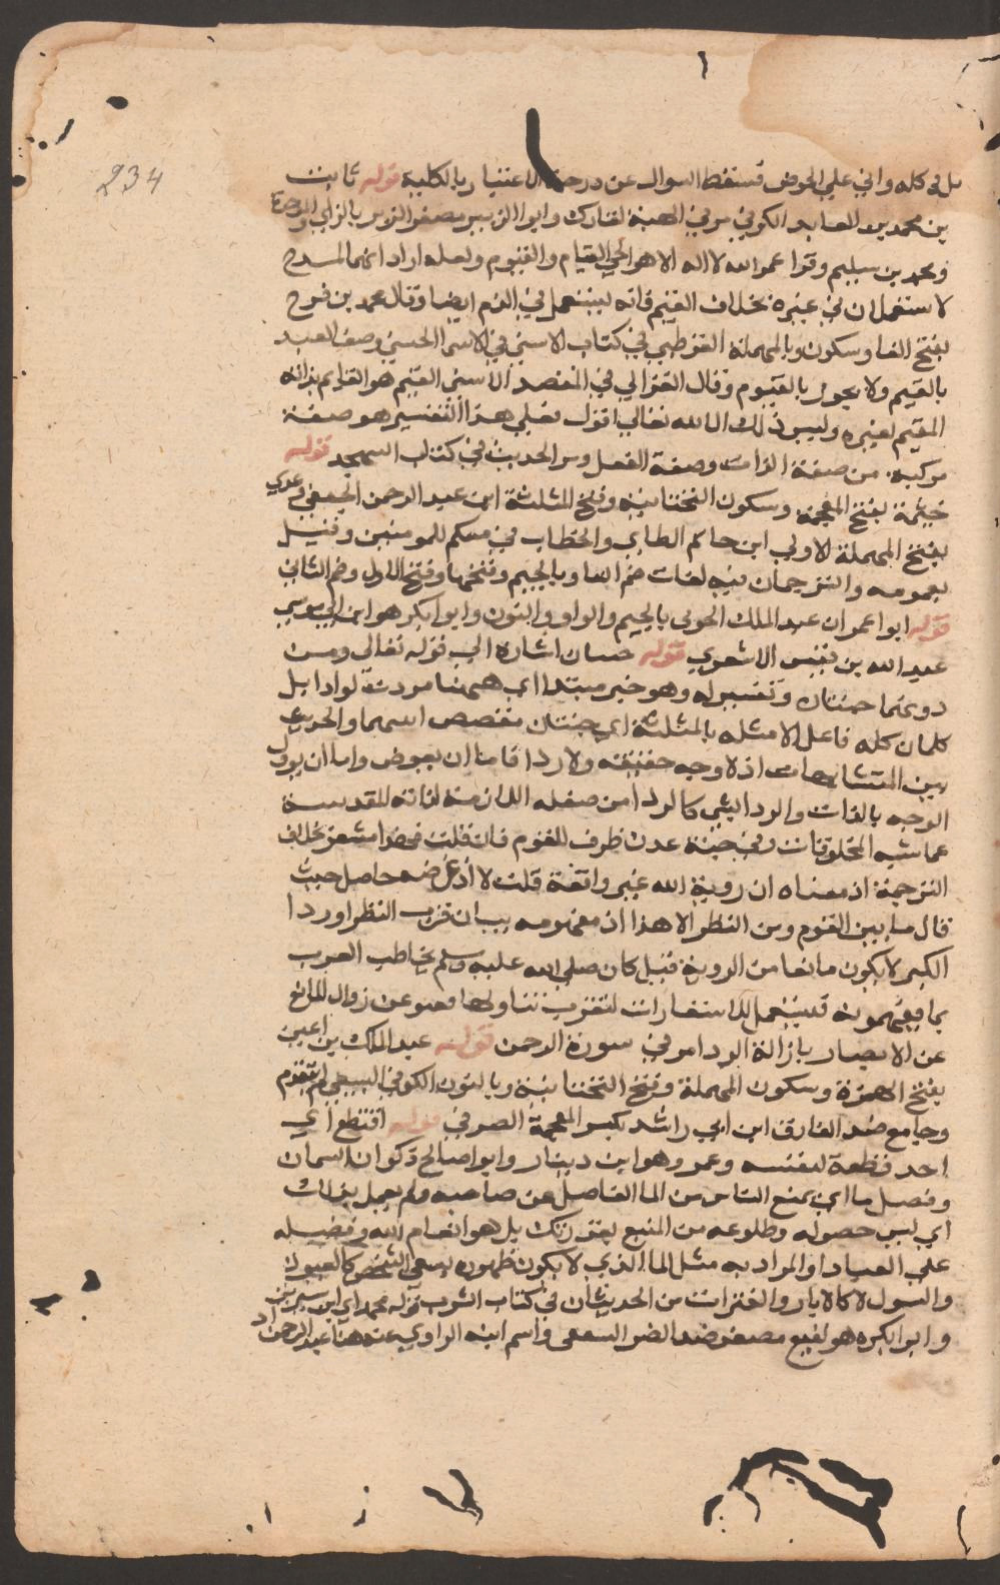 234
بل في كله واني علي الحوض فسقط السوال عن درجة الاعتبار بالكلية قوله ثابت
بن محمد بن العابد الكوفي مر في الهبة لفارك وابوا الزبير مصغر الزبر بالزاي والموحدة
ومحمد بن سليم وقرا عمر الله لا اله الا هو الحي القيام والقيوم ولعله اراد انهما للمدح
لا ستعملان في غيره بخلاف القيم فانه يستعمل في الذم ايضا وقال محمد بن فرح
بفتح الفا وسكون وبالمهملة القرطبي في كتاب الاسني في الاسما الحسني وصف العبد
بالقيم ولا يجوز بالقيوم وقال الغزالي في المقصد الاسني القيم هو القايم بذاته
المقيم لغيره وليس ذلك الا لله تعالي اقول فعلي هذا التفسير هو صفة
مركبة من صفة الذات وصفة الفعل ومر الحديث في كتاب التهجد قوله
خيثمة بفتح المعجمة وسكون التحتانية وفتح المثلثة ابن عبد الرحمن الجعفي وعدي
بفتح المهملة الاولي ابن حاتم الطاي والخطاب في منكم للمومنين وقيل
بعمومه والترجمان فيه لغات ضم التا وبالجيم وفتحها وفتح الاول وضم الثاني
قوله ابوا عمران عبد الملك الجوني بالجيم والواو والنون وابوا بكر هو ابن ابي موسي
عبد الله بن قيس الاشعري قوله جنتان اشارة الي قوله تعالي ومن
دونهما جنتان وتفسير له وهو خبر مبتدا اي هما
كلمان كله فاعل الا مثله بالمثلثة اي جنتان مفضض اسمهما والحديث
من المتشابهات اذ لا وجه حقيقة ولا ردا فاما ان يفوض واما ان يوول
الوجه بالذات والردا بشي كالردا من صفاته اللازمة لذاته المقدسة
عما يشبه المخلوقات وفي جنة عدن ظرف للقوم فان قلت فهو مشعر بخلاف
الترجمة اذ معناه ان روية الله غير واقعة قلت لا اذ غرضه حاصل حيث
قال ما بين القوم وبين النظر الا هذا اذ مفهومه بيان قرب النظر اوردا
الكبر لا يكون مانعا من الروية قيل كان صلي الله عليه وسلم يخاطب العرب
بما يفهمونه فيستعمل الاستعارات لتقرب تناولها فعبر عن زوال المانع
عن الابصار بازالة الردا مر في سورة الرحمن قوله عبد الملك بن اعين
بفتح الهمزة وسكون المهملة وفتح التحتانية وبالنون الكوفي الشيعي لم يتقدم
وجامع ضد الفارق ابن ابي راشد بكسر المعجمة الصرفي قوله اقتطع اي
اخذ قطعة لنفسه وعمرو هو ابن دينار وابوا صالح ذكوان السمان
وفضل ما اي يمنع الناس من الما الفاضل عن حاجته ولم يعمل يداك
اي ليس حصوله وطلوعه من المنبع بقدرتك بل هو انعام الله وفضله
علي العباد او المراد به مثل الما الذي لا يكون ظهوره بسعي الشخص كالعيون
والسيول لا كالابار والقنوات مر الحديثان في كتاب الشرب قوله محمد اي ابن سيرين
وابوا بكره هو نفيع مصغر ضد الضر الثقفي واسم ابنه الراوي عنه هنا عبد الرحمن